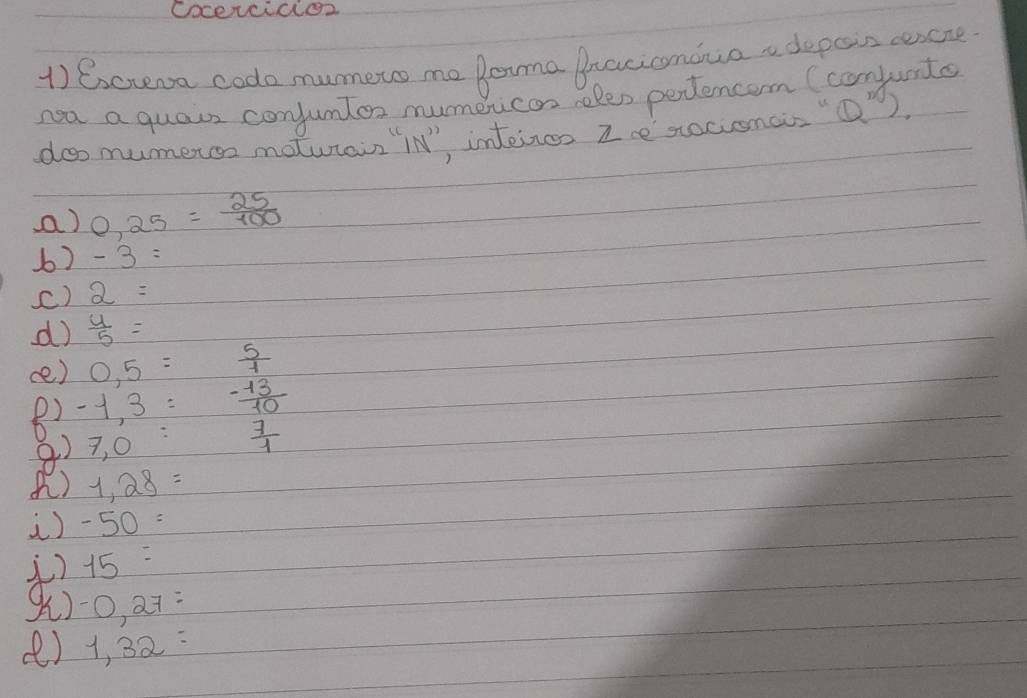 Exercicios
1) Escreva cada numero na forma fracionária e depois escre-
va a quais conjuntos numéricos eles pertencem (conjunto
dos numeros naturais "IN", inteiros Z e racionais "Q").
a) 0,25 = 25/100
b) -3 =
c) 2 =
d) 4/5 =
e) 0,5 = 5/1
f) -1,3 = -13/10
g) 7,0 = 7/1
h) 1,28 =
i) -50 =
j) 15 =
k) -0,27 =
l) 1,32 =